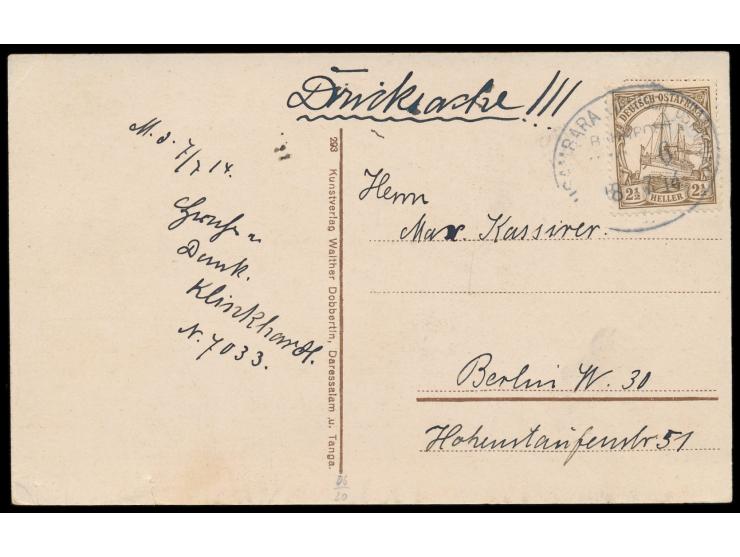 Drucksache!!!
DEUTSCH-OSTAFRIKA
2½ HELLER 2½
USAMBARA
M. d. 7/7 14.
Gruß u
Dank.
Klinkhardt.
N. 7033.
293 Kunstverlag Walther Dobbertin, Daressalam u. Tanga.
Herrn
Max Kassirer.
Berlin W. 30
Hohenstaufenstr 51